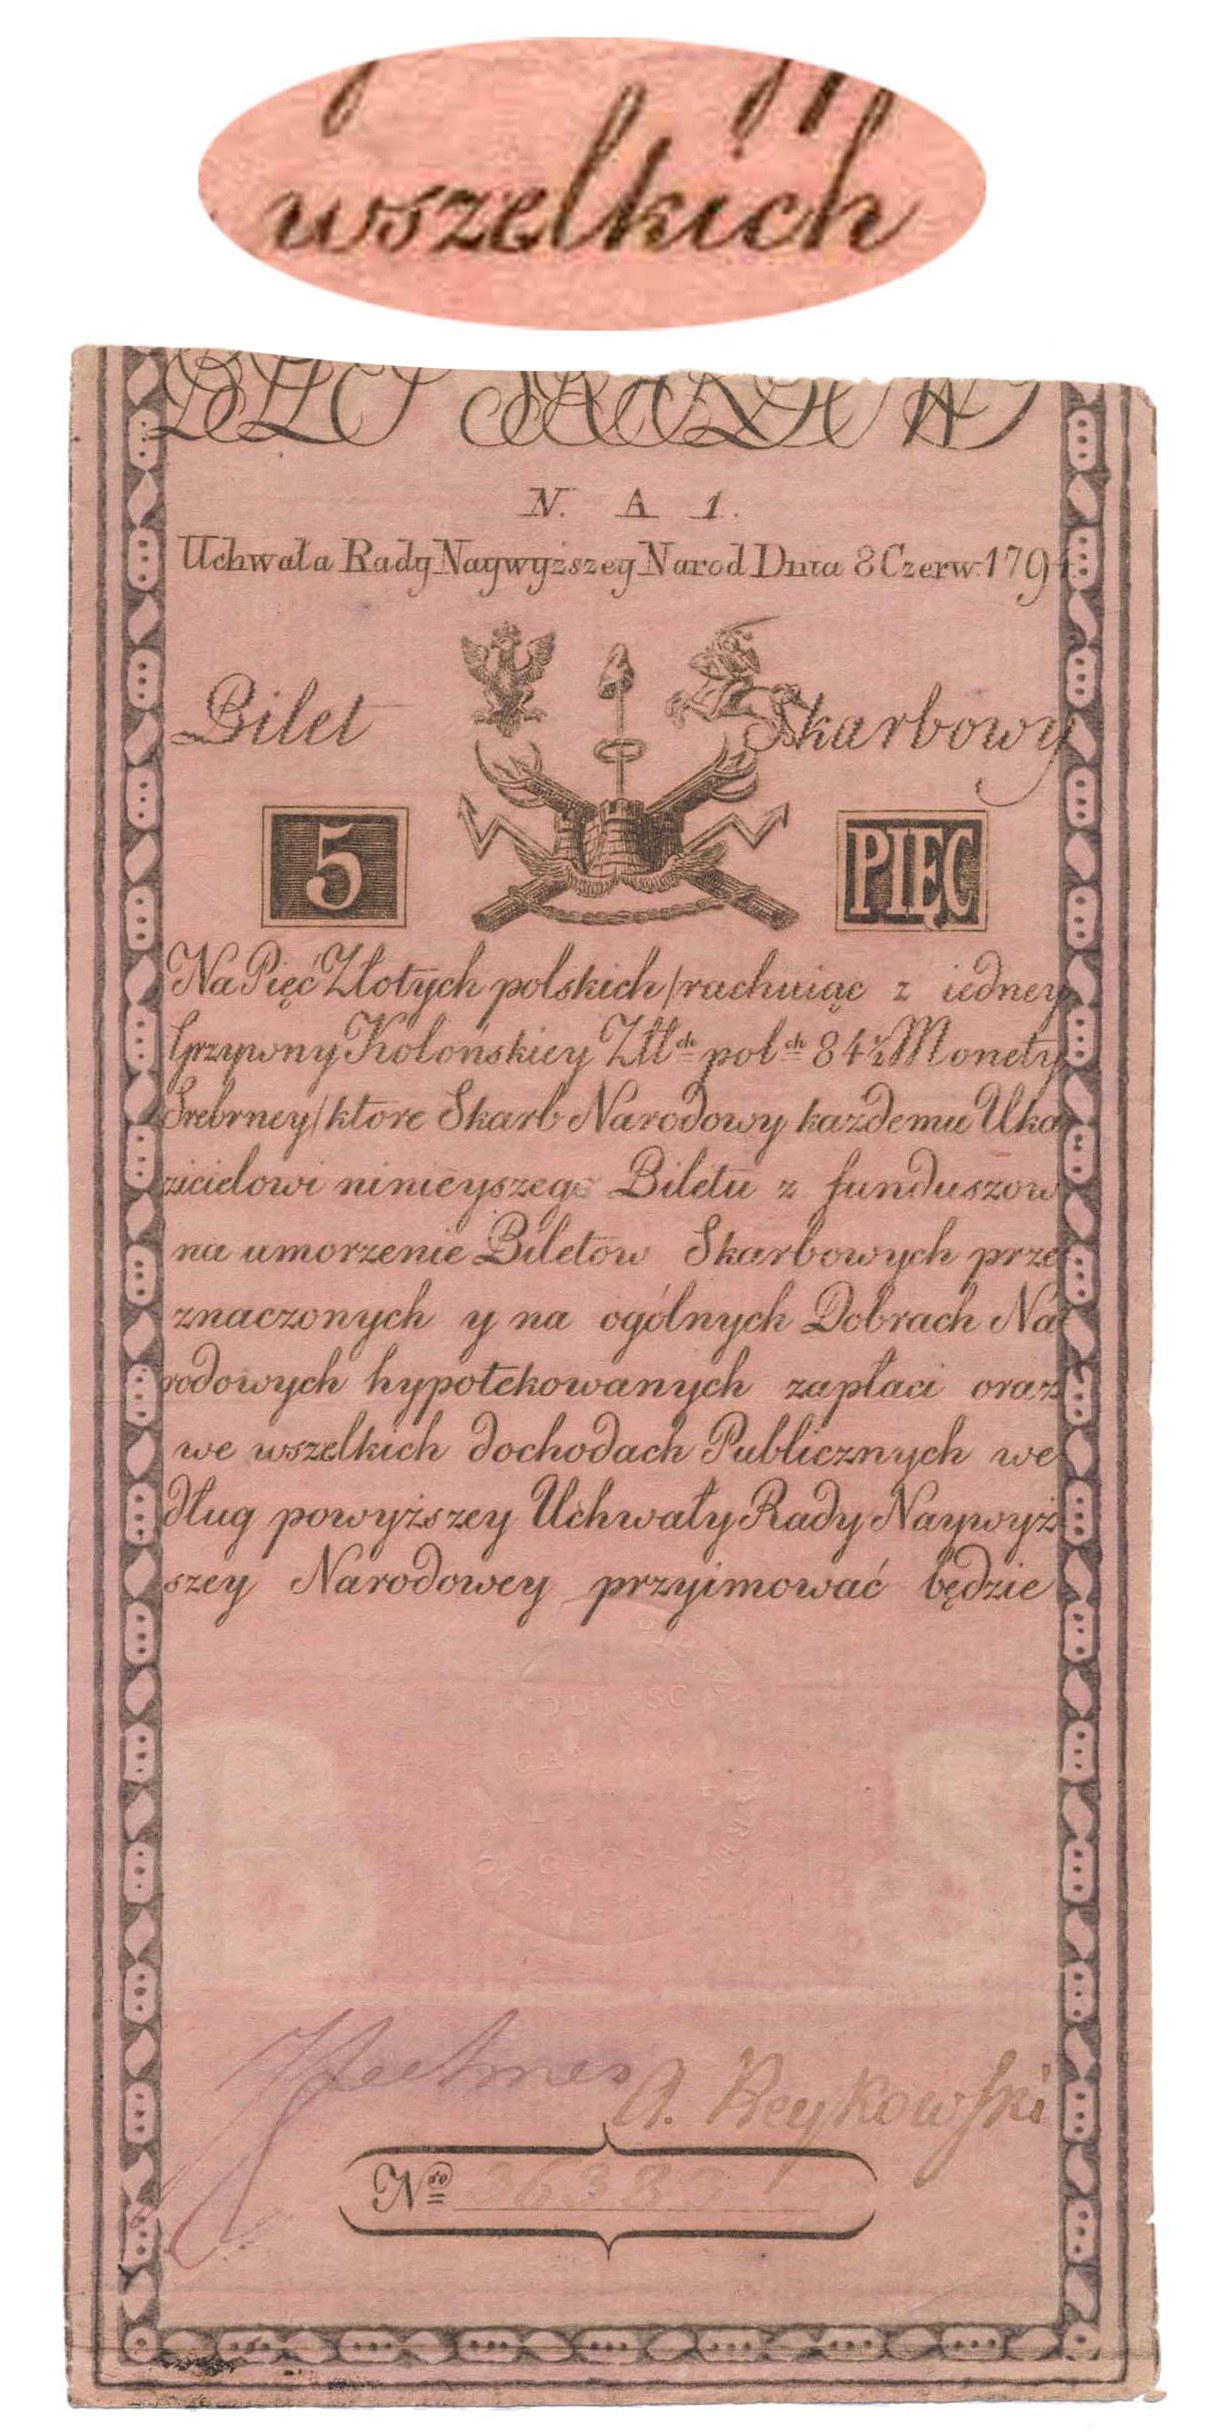 wszelkich
BILET SKARBOWY
N. A 1.
Uchwała Rady Naywyższey Narod Dnia 8 Czerw. 1794
Bilet Skarbowy
5 PIĘC
Na Pięć Złotych polskich/rachuiąc z iedney
Grzywny Kolońskiey Złł ch pol ch 84½ Monety
Srebrney/ktore Skarb Narodowy każdemu Uka
zicielowi ninieyszego Biletu z funduszow
na umorzenie Biletow Skarbowych prze
znaczonych y na ogólnych Dobrach Na
rodowych hypotekowanych zapłaci oraz
we wszelkich dochodach Publicznych we
dług powyższey Uchwały Rady Naywyż
szey Narodowey przyimować będzie
A. Reykowski
Nro